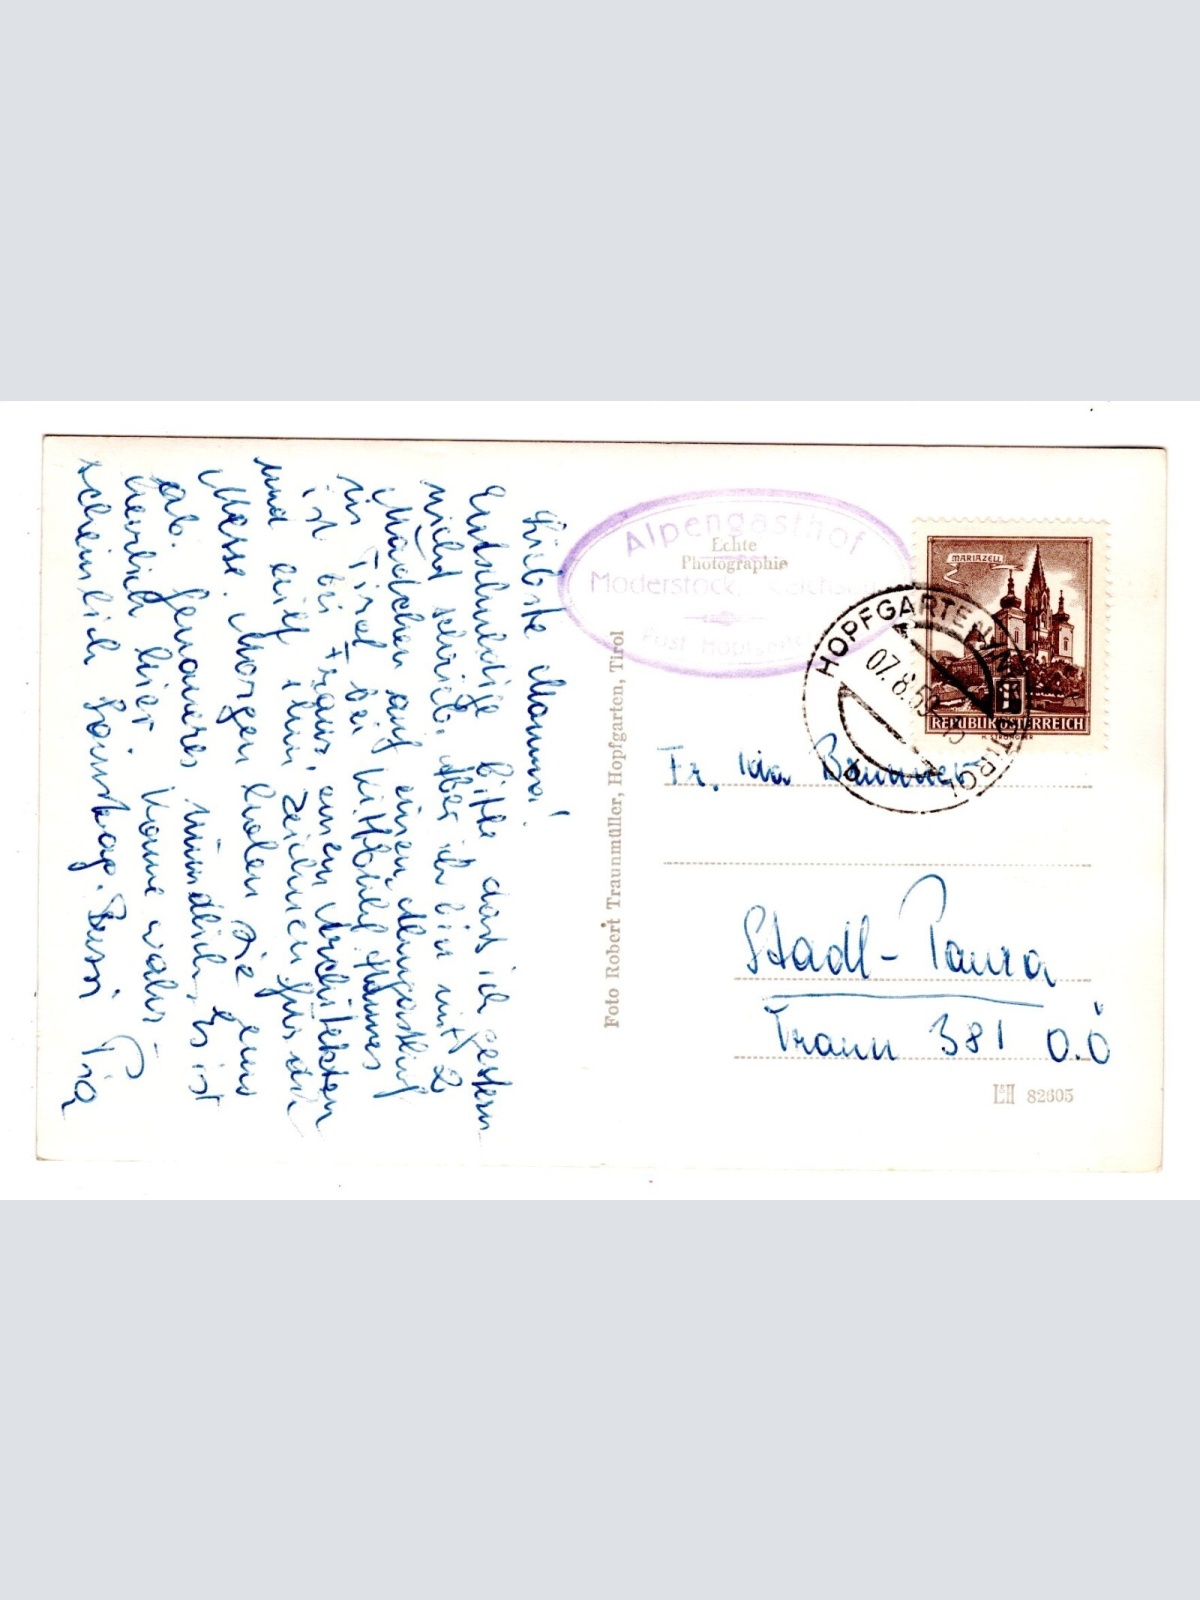 Liebste Mamma!
Entschuldige bitte dass ich gestern
nicht schrieb, aber ich bin mit 2
Mädchen auf einem Almgasthof
in Tirol bei Kitzbühel. Hannes
ist bei Franz, einem Architekten
und hilft ihm zeichnen für die
Messe. Morgen holen sie uns
ab. Genaueres mündlich. Es ist
herrlich hier. Komme wahr-
scheinlich Samstag. Bussi Pia
Alpengasthof
Echte
Photographie
Moderstock,
Post Hopfgarten
Foto Robert Traunmüller, Hopfgarten, Tirol
MARIAZELL
REPUBLIK ÖSTERREICH
HOPFGARTEN IN TIROL
07.8.59
Fr. Ida Brunner
Stadl-Paura
Traun 381 O.Ö
L&H 82605